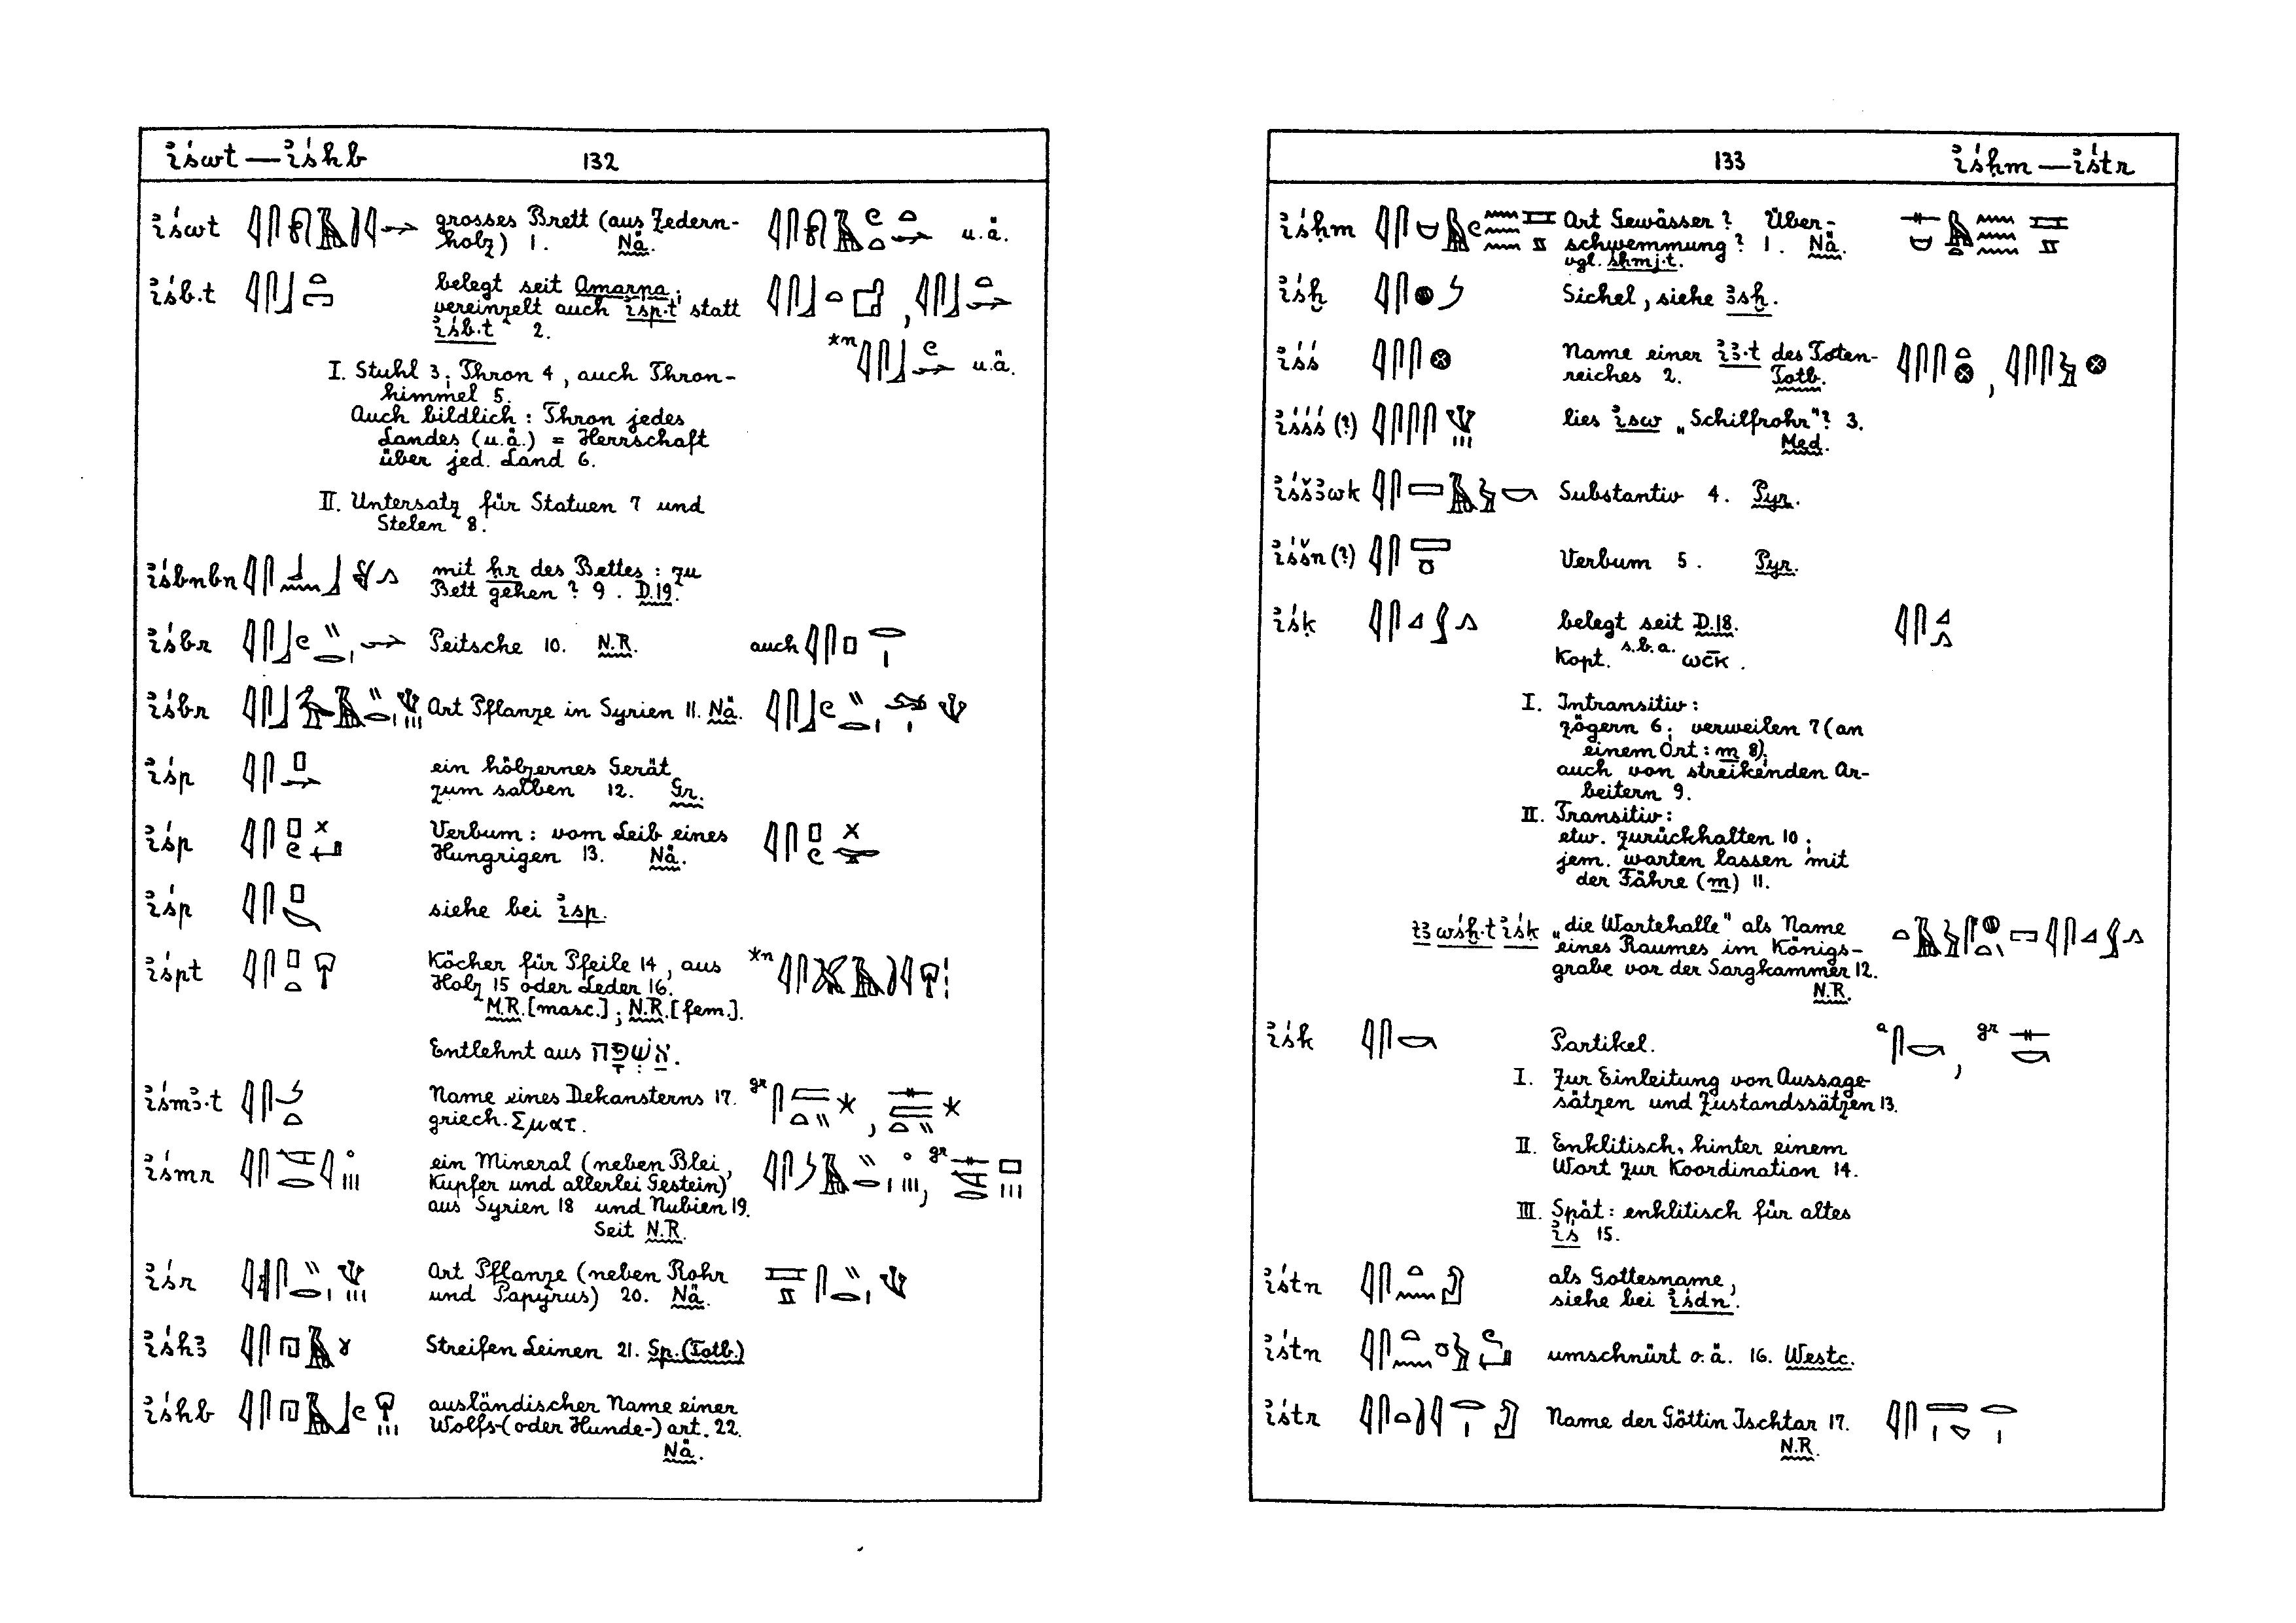 iśwt — iśhb 132
iśwt grosses Brett (aus Zedern-
holz) 1. Nä. u.ä.
iśb.t belegt seit Amarna;
vereinzelt auch iśp.t statt
iśb.t 2.
*n u.ä.
I. Stuhl 3; Thron 4, auch Thron-
himmel 5.
Auch bildlich: Thron jedes
Landes (u.ä.) = Herrschaft
über jed. Land 6.
II. Untersatz für Statuen 7 und
Stelen 8.
iśbnbn mit ḥr des Bettes: zu
Bett gehen? 9. D.19.
iśbr Peitsche 10. N.R. auch
iśbr Art Pflanze in Syrien 11. Nä.
iśp ein hölzernes Gerät
zum salben 12. Gr.
iśp Verbum: vom Leib eines
Hungrigen 13. Nä.
iśp siehe bei isp.
iśpt Köcher für Pfeile 14, aus *n
Holz 15 oder Leder 16.
M.R. [masc.]; N.R. [fem.].
Entlehnt aus אַשְׁפָּה.
iśmꜣ.t Name eines Dekansterns 17. gr
griech. Σματ.
iśmr ein Mineral (neben Blei, gr
Kupfer und allerlei Gestein)
aus Syrien 18 und Nubien 19.
Seit N.R.
iśr Art Pflanze (neben Rohr
und Papyrus) 20. Nä.
iśhꜣ Streifen Leinen 21. Sp. (Totb.)
iśhb ausländischer Name einer
Wolfs- (oder Hunde-) art. 22.
Nä.
133 iśḥm — iśtr
iśḥm Art Gewässer? Über-
schwemmung? 1. Nä.
vgl. śḥmj.t.
iśḫ Sichel, siehe ꜣsḫ.
iśś Name einer iꜣ.t des Toten-
reiches 2. Totb.
iśśś (?) lies isw „Schilfrohr"? 3.
Med.
iśšꜣwk Substantiv 4. Pyr.
iśšn (?) Verbum 5. Pyr.
iśḳ belegt seit D.18.
Kopt. s.b.a. ⲱⲥ̄ⲕ.
I. Intransitiv:
zögern 6; verweilen 7 (an
einem Ort: m 8);
auch von streikenden Ar-
beitern 9.
II. Transitiv:
etw. zurückhalten 10;
jem. warten lassen mit
der Fähre (m) 11.
tꜣ wśḫ.t iśḳ „die Wartehalle" als Name
eines Raumes im Königs-
grabe vor der Sargkammer 12.
N.R.
iśk Partikel. a , gr
I. Zur Einleitung von Aussage-
sätzen und Zustandssätzen 13.
II. Enklitisch, hinter einem
Wort zur Koordination 14.
III. Spät: enklitisch für altes
iś 15.
iśtn als Gottesname,
siehe bei iśdn.
iśtn umschnürt o.ä. 16. Westc.
iśtr Name der Göttin Ischtar 17.
N.R.